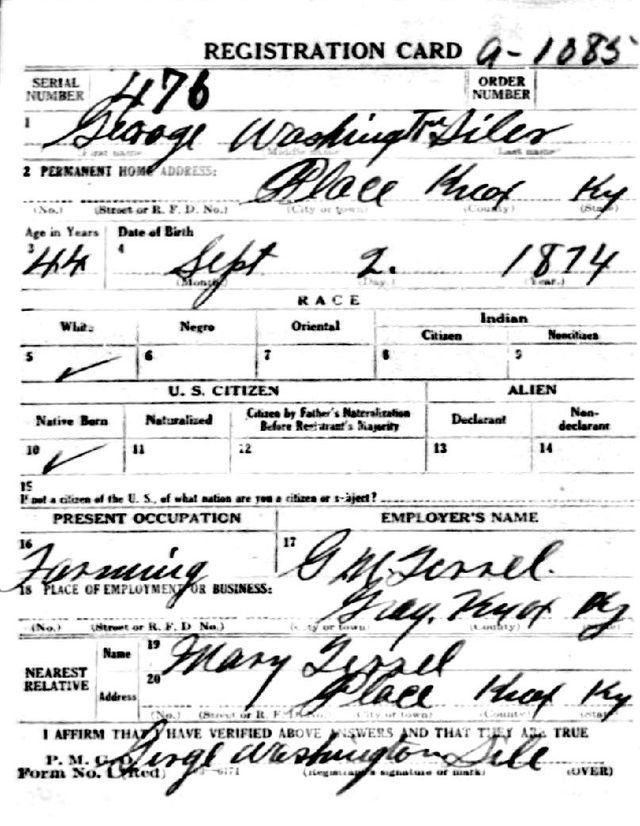 REGISTRATION CARD a-1085
SERIAL NUMBER 476 ORDER NUMBER
1 George Washington Siler
First name Middle name Last name
2 PERMANENT HOME ADDRESS: Place Knox Ky
(No.) (Street or R. F. D. No.) (City or town) (County) (State)
Age in Years Date of Birth
3 44 4 Sept 2. 1874
(Month) (Day.) (Year.)
RACE
White Negro Oriental Indian
Citizen Noncitizen
5 ✓ 6 7 8 9
U. S. CITIZEN ALIEN
Native Born Naturalized Citizen by Father's Naturalization Before Registrant's Majority Declarant Non-declarant
10 ✓ 11 12 13 14
15
If not a citizen of the U. S., of what nation are you a citizen or subject?
PRESENT OCCUPATION EMPLOYER'S NAME
16 Farming 17 G M Terrel.
18 PLACE OF EMPLOYMENT OR BUSINESS: Gray. Knox Ky
(No.) (Street or R. F. D. No.) (City or town) (County) (State)
NEAREST RELATIVE Name 19 Mary Terrel
Address 20 Place Knox Ky
(No.) (Street or R. F. D. No.) (City or town) (County) (State)
I AFFIRM THAT I HAVE VERIFIED ABOVE ANSWERS AND THAT THEY ARE TRUE
P. M. G. O. George Washington Sile
Form No. 1 (Red) (Registrant's signature or mark) (OVER)